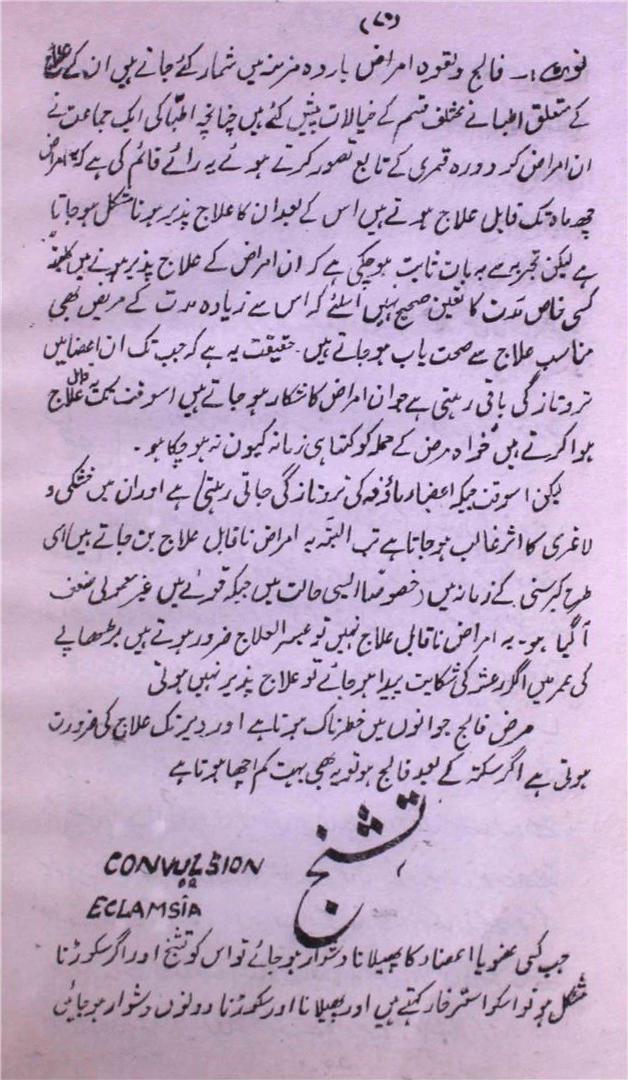 (۷۰)
نوٹ :۔ فالج و لقوہ امراض باردہ مزمنہ میں شمار کئے جاتے ہیں ان کے علاج
کے متعلق اطبا نے مختلف قسم کے خیالات پیش کئے ہیں چنانچہ اطبا کی ایک جماعت نے
ان امراض کو دورہ قمری کے تابع تصور کرتے ہوئے یہ رائے قائم کی ہے کہ یہ امراض
چھ ماہ تک قابل علاج ہوتے ہیں اس کے بعد ان کا علاج پذیر ہونا مشکل ہو جاتا
ہے لیکن تجربہ سے یہ بات ثابت ہو چکی ہے کہ ان امراض کے علاج پذیر ہونے میں
کسی خاص مدت کا تعین صحیح نہیں اسلئے کہ اس سے زیادہ مدت کے مریض بھی
مناسب علاج سے صحت یاب ہو جاتے ہیں۔ حقیقت یہ ہے کہ جب تک ان اعضا میں
تروتازگی باقی رہتی ہے جو ان امراض کا شکار ہو جاتے ہیں اسوقت تک یہ قابل علاج
ہوا کرتے ہیں خواہ مرض کے حملہ کو کتنا ہی زمانہ کیوں نہ ہو چکا ہو۔
لیکن اسوقت جبکہ اعضاء ماؤفہ کی تروتازگی جاتی رہتی ہے اور ان میں خشکی و
لاغری کا اثر غالب ہو جاتا ہے تب البتہ یہ امراض ناقابل علاج بن جاتے ہیں اسی
طرح کبرسنی کے زمانہ میں (خصوصاً ایسی حالت میں جبکہ قوےٰ میں غیر معمولی ضعف
آگیا ہو۔ یہ امراض ناقابل علاج نہیں تو عسیر العلاج ضرور ہوتے ہیں بڑھاپے
کی عمر میں اگر رعشہ کی شکایت پیدا ہو جائے تو علاج پذیر نہیں ہوتی
مرض فالج جوانوں میں خطرناک ہوتا ہے اور دیر تک علاج کی ضرورت
ہوتی ہے اگر سکتہ کے بعد فالج ہو تو یہ بھی بہت کم اچھا ہوتا ہے
تشنج
CONVULSION
OR
ECLAMSIA
جب کسی عضو یا اعضاء کا پھیلانا دشوار ہو جائے تو اس کو تشنج اور اگر سکوڑنا
مشکل ہو تو اسکو استرخار کہتے ہیں اور پھیلانا اور سکوڑنا دونوں دشوار ہو جائیں